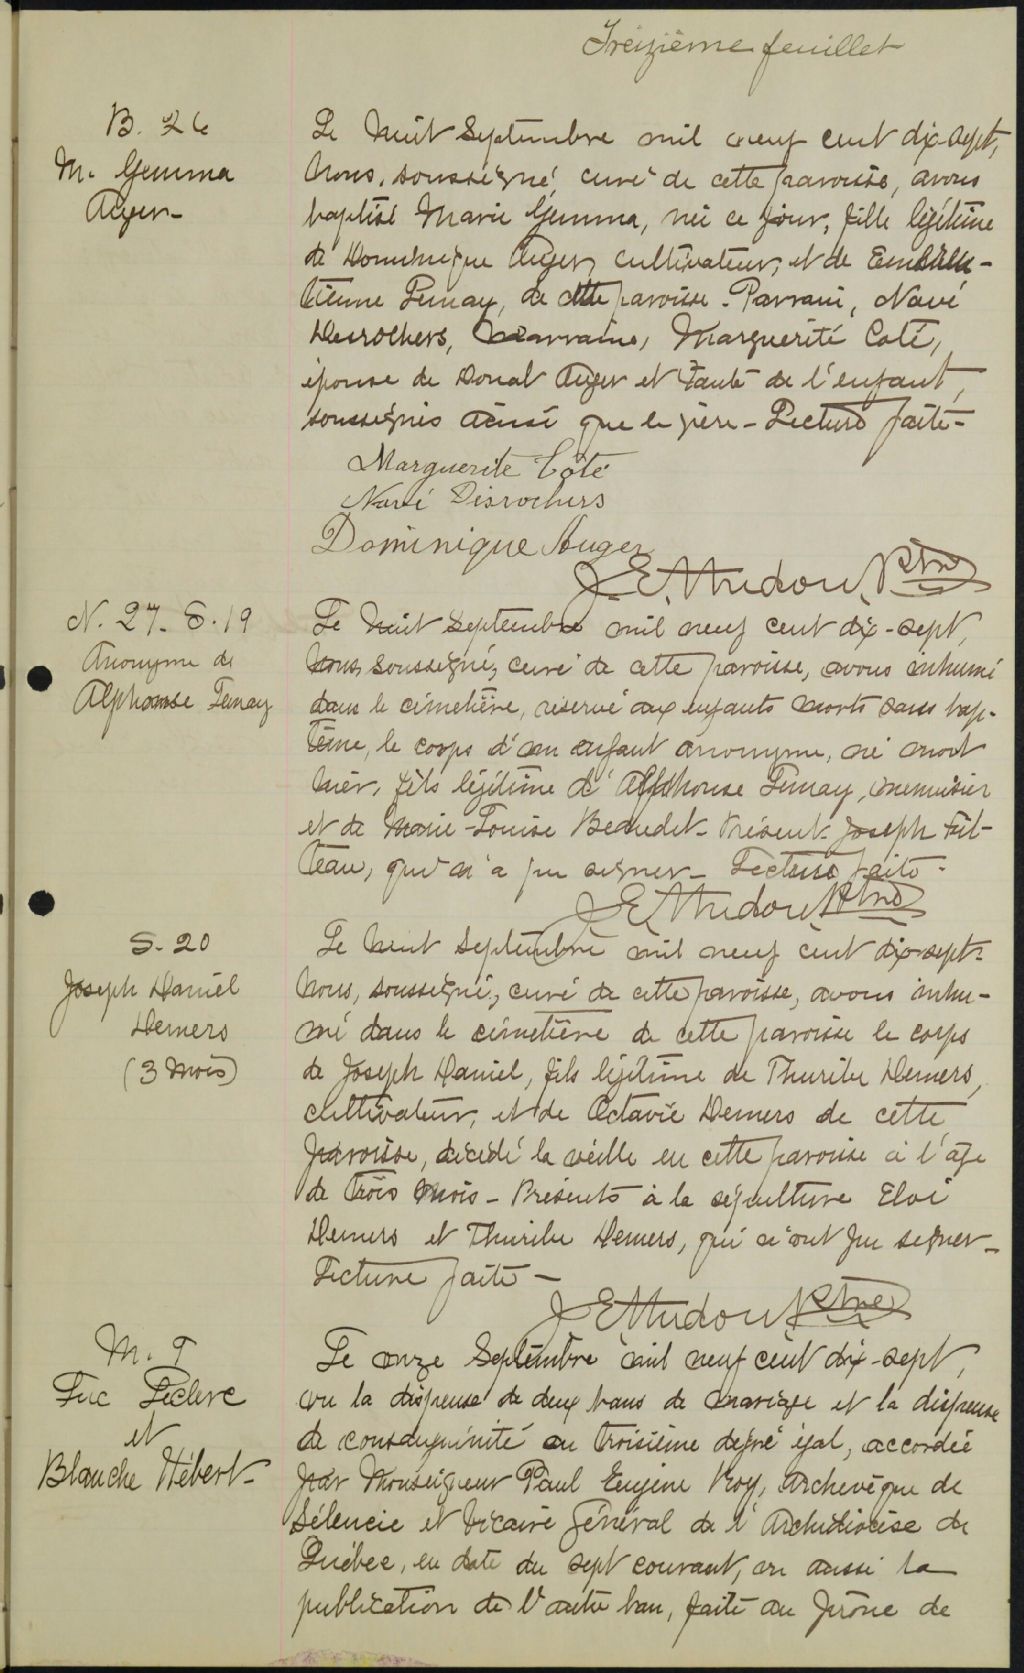 Treizième feuillet
B. 26
M. Gemma
Auger-
Le huit Septembre mil neuf cent dix-sept,
Nous, soussigné, curé de cette paroisse, avons
baptisé Marie Gemma, née ce jour, fille légitime
de Dominique Auger, cultivateur, et de
Lemay, de cette paroisse - Parrain, Noré
Desrochers, Marraine, Marguerite Coté,
épouse de Donat Auger et tante de l'enfant,
soussignés ainsi que le père - Lecture faite -
Marguerite Côté
Noré Desrochers
Dominique Auger
J. E. Ptre
N. 27. S. 19
Anonyme de
Alphonse Lemay
Le huit Septembre mil neuf cent dix-sept,
Nous, soussigné, curé de cette paroisse, avons inhumé
dans le cimetière, réservé aux enfants morts sans bap-
tême, le corps d'un enfant anonyme, né mort
hier, fils légitime d'Alphonse Lemay, menuisier
et de Marie-Louise Beaudet - Présent - Joseph Fil-
teau, qui n'a pu signer - Lecture faite -
J. E. Ptre
S. 20
Joseph Daniel
Demers
(3 mois)
Le huit Septembre mil neuf cent dix-sept -
Nous, soussigné, curé de cette paroisse, avons inhu-
mé dans le cimetière de cette paroisse le corps
de Joseph Daniel, fils légitime de Thuribe Demers,
cultivateur, et de Octavie Demers de cette
paroisse, décédé la veille en cette paroisse à l'âge
de trois mois - Présents à la sépulture Eloi
Demers et Thuribe Demers, qui n'ont pu signer -
Lecture faite -
J E Ptre
M. 9
Luc Leclerc
et
Blanche Hébert -
Le onze Septembre mil neuf cent dix-sept,
vu la dispense de deux bans de mariage et la dispense
de consanguinité au troisième degré égal, accordée
par Monseigneur Paul Eugène Roy, Archevêque de
Séleucie et Vicaire Général de l'Archidiocèse de
Québec, en date du sept courant, vu aussi la
publication de l'autre ban, faite au prône de